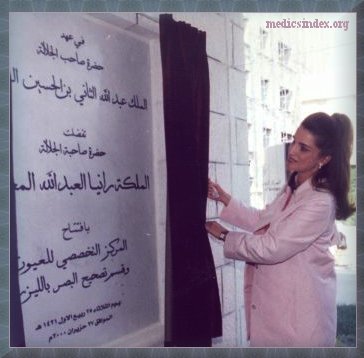 medicsindex.org
في عهد
حضرة صاحب الجلالة
الملك عبدالله الثاني بن الحسين
تفضلت
حضرة صاحبة الجلالة
الملكة رانيا العبدالله
بافتتاح
المركز التخصصي للعيون
وقسم تصحيح البصر بالليزر
يوم الثلاثاء ٢٥ ربيع الاول ١٤٢١ هـ
الموافق ٢٧ حزيران ٢٠٠٠ م